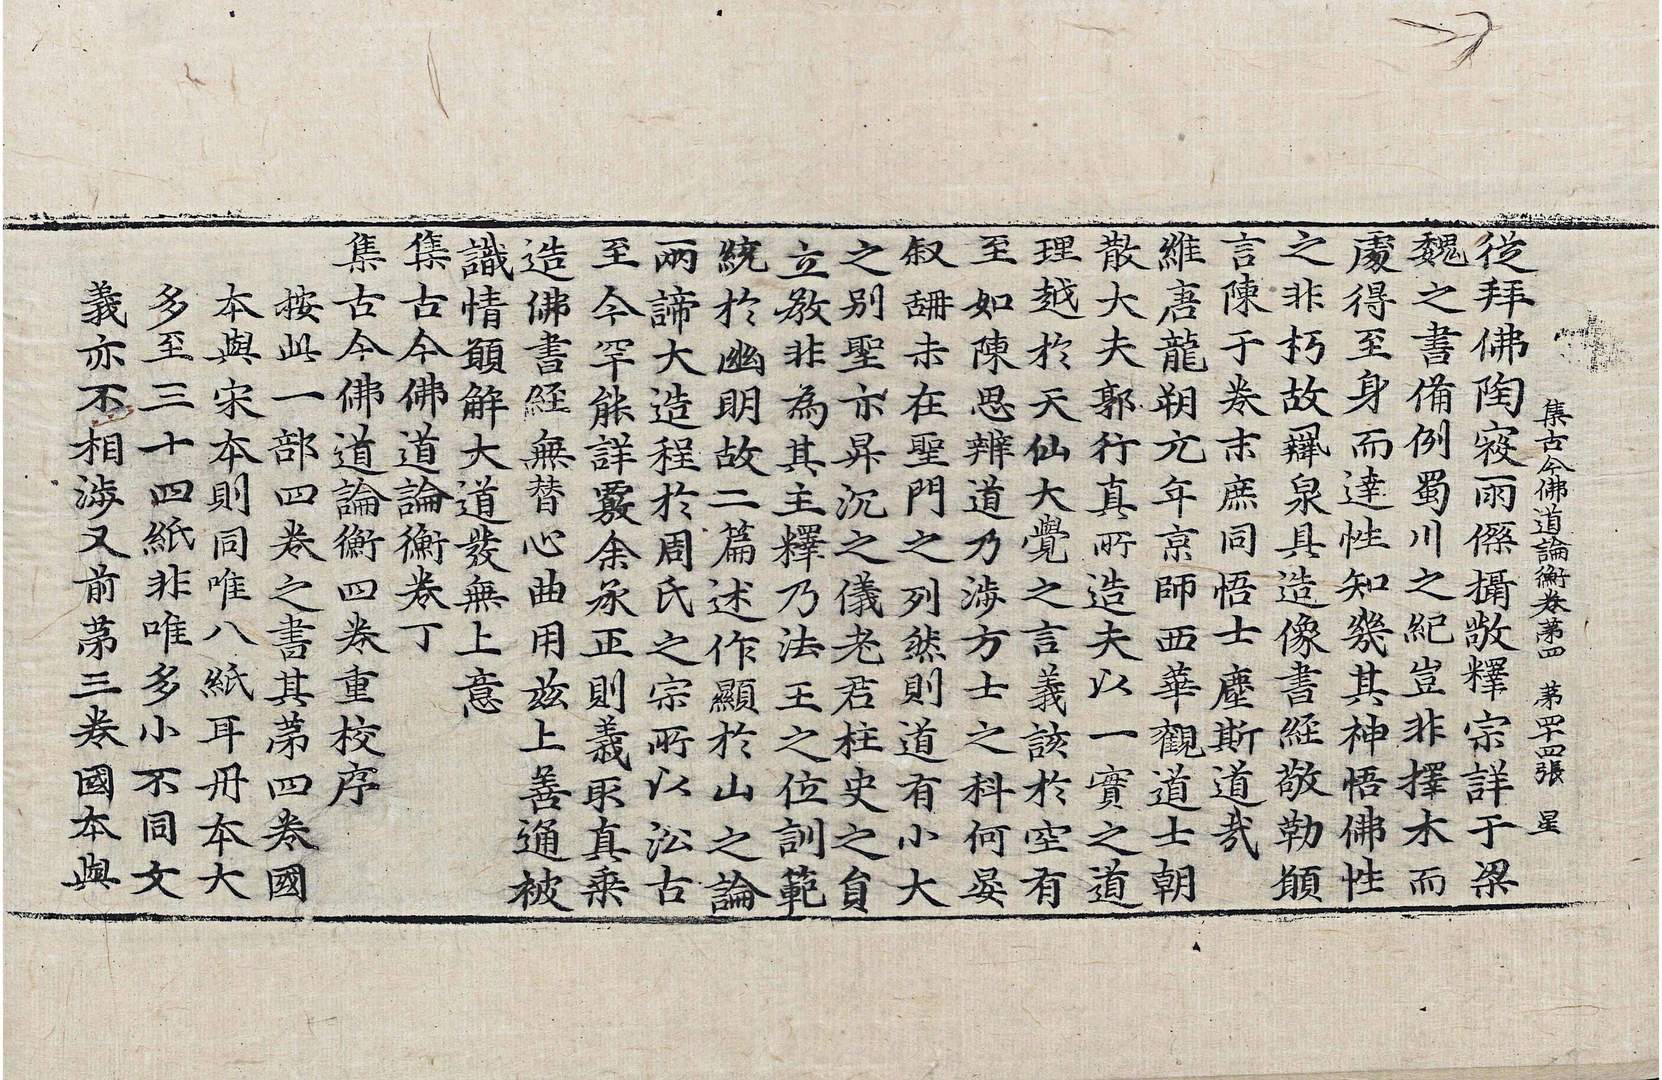 集古今佛道論衡卷第四　第四十四張　星
從拜佛陶寇雨傺攝敬釋宗詳于梁
魏之書備例蜀川之紀豈非擇木而
處得至身而達性知幾其神悟佛性
之非朽故羈泉具造像書經敬勒願
言陳于卷末庶同悟士塵斯道哉
維唐龍朔元年京師西華觀道士朝
散大夫郭行真所造夫以一實之道
理越於天仙大覺之言義該於空有
至如陳思辨道乃涉方士之科何晏
叙冊未在聖門之列然則道有小大
之別聖亦昇沉之儀老君柱史之員
立教非為其主釋乃法王之位訓範
統於幽明故二篇述作顯於山之論
兩諦大造程於周氏之宗所以訟古
至今罕能詳覈余承正則義取真乗
造佛書経無替心曲用兹上善通被
識情願解大道發無上意
集古今佛道論衡卷丁
集古今佛道論衡四卷重校序
按此一部四卷之書其第四卷國
本與宋本則同唯八紙耳丹本大
多至三十四紙非唯多小不同文
義亦不相涉又前第三卷國本與